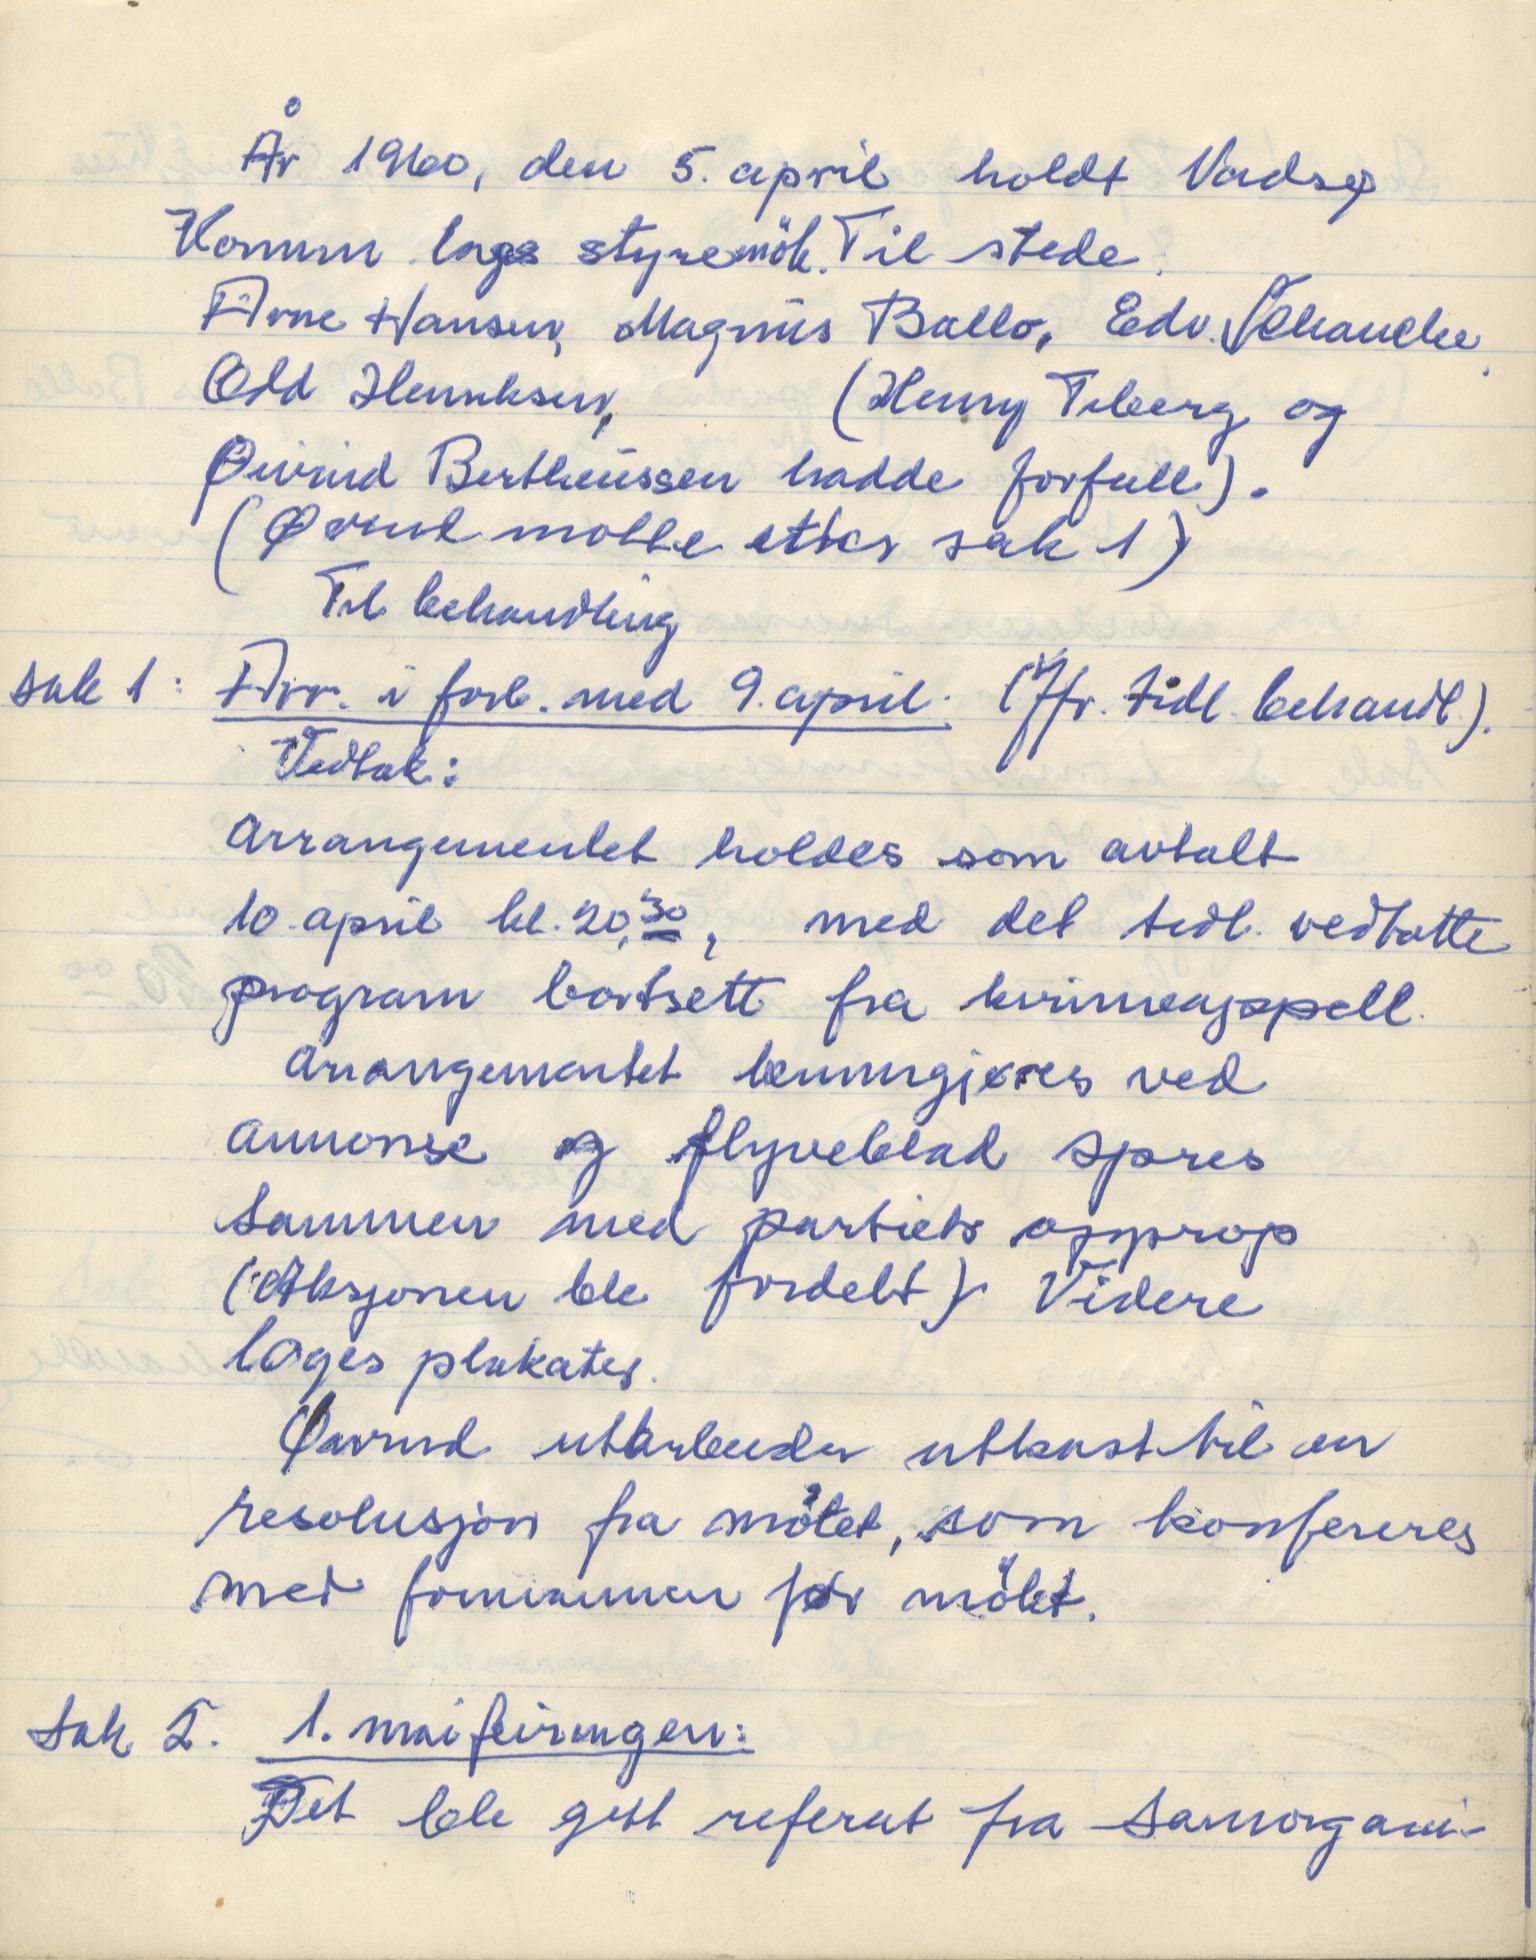 År 1960, den 5. april holdt Vadsø
Komm. lags styremöte. Til stede:
Arne Hansen, Magnus Ballo, Edv. Schancke,
Odd Henriksen, (Henry Teberg og
Øivind Bertheussen hadde forfall).
(Øivind møtte etter sak 1)
Til behandling
Sak 1: Arr. i forb. med 9. april. (Jfr. tidl. behandl.).
Vedtak:
Arrangementet holdes som avtalt
10. april kl. 20,30, med det tidl. vedtatte
program bortsett fra kvinneappell.
Arrangementet kunngjøres ved
annonse og flyveblad spres
sammen med partiets opprop
(Aksjonen ble fordelt). Videre
lages plakater.
Øivind utarbeider utkast til en
resolusjon fra møtet, som konfereres
med formannen før mötet.
Sak 2. 1. mai feiringen:
Det ble gitt referat fra Samorgani-